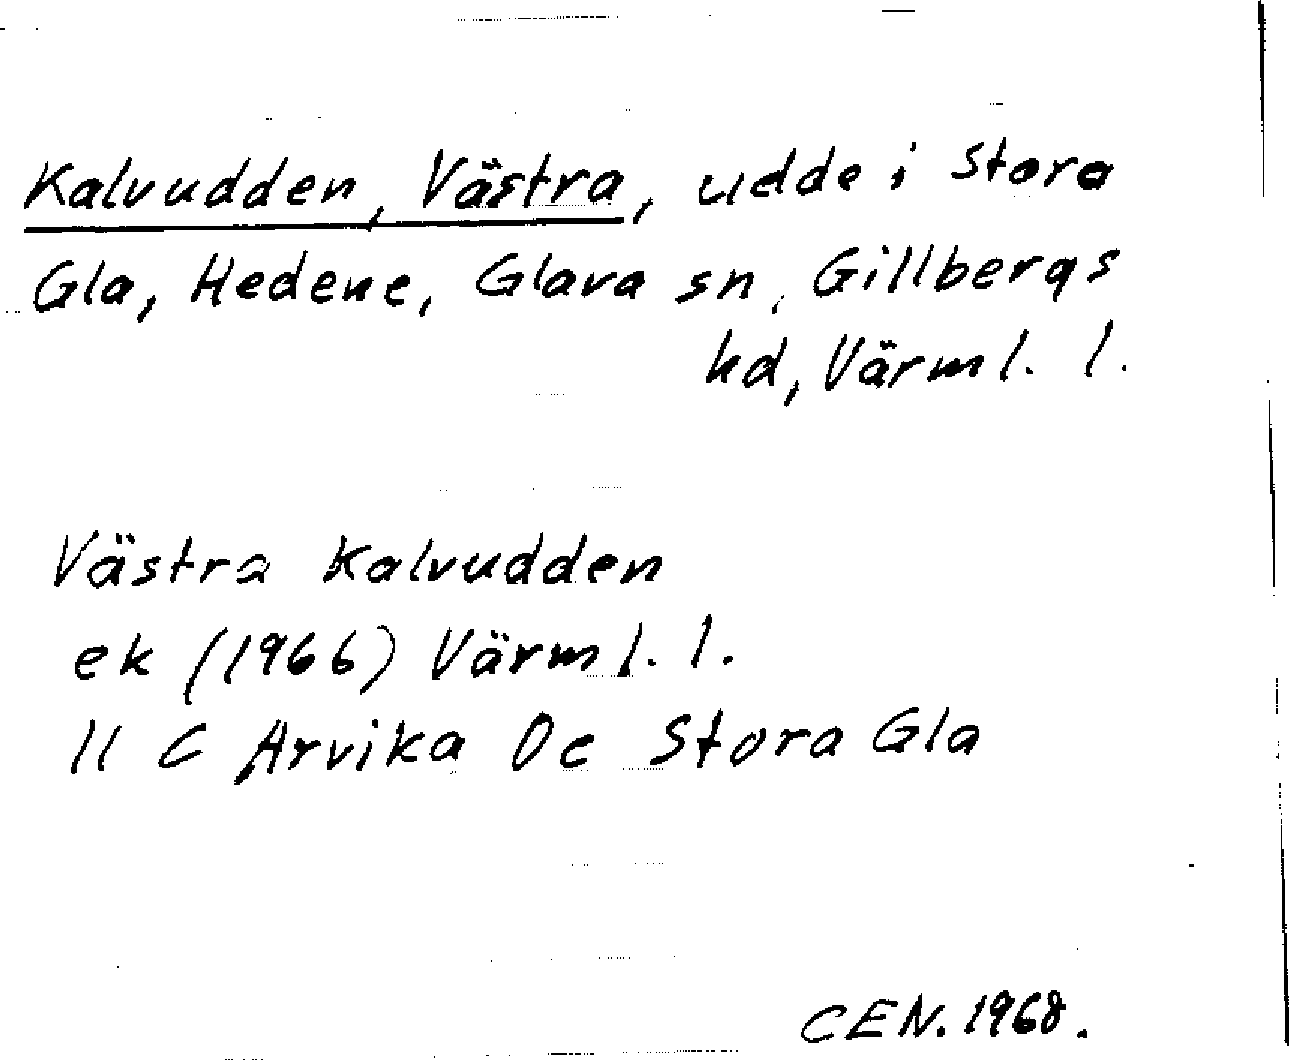 Kalvudden, Västra, udde i Stora
Gla, Hedene, Glava sn, Gillbergs
hd, Värml. l.
Västra Kalvudden
ek (1966) Värml. l.
11 C Arvika 0c Stora Gla
CEN. 1968.